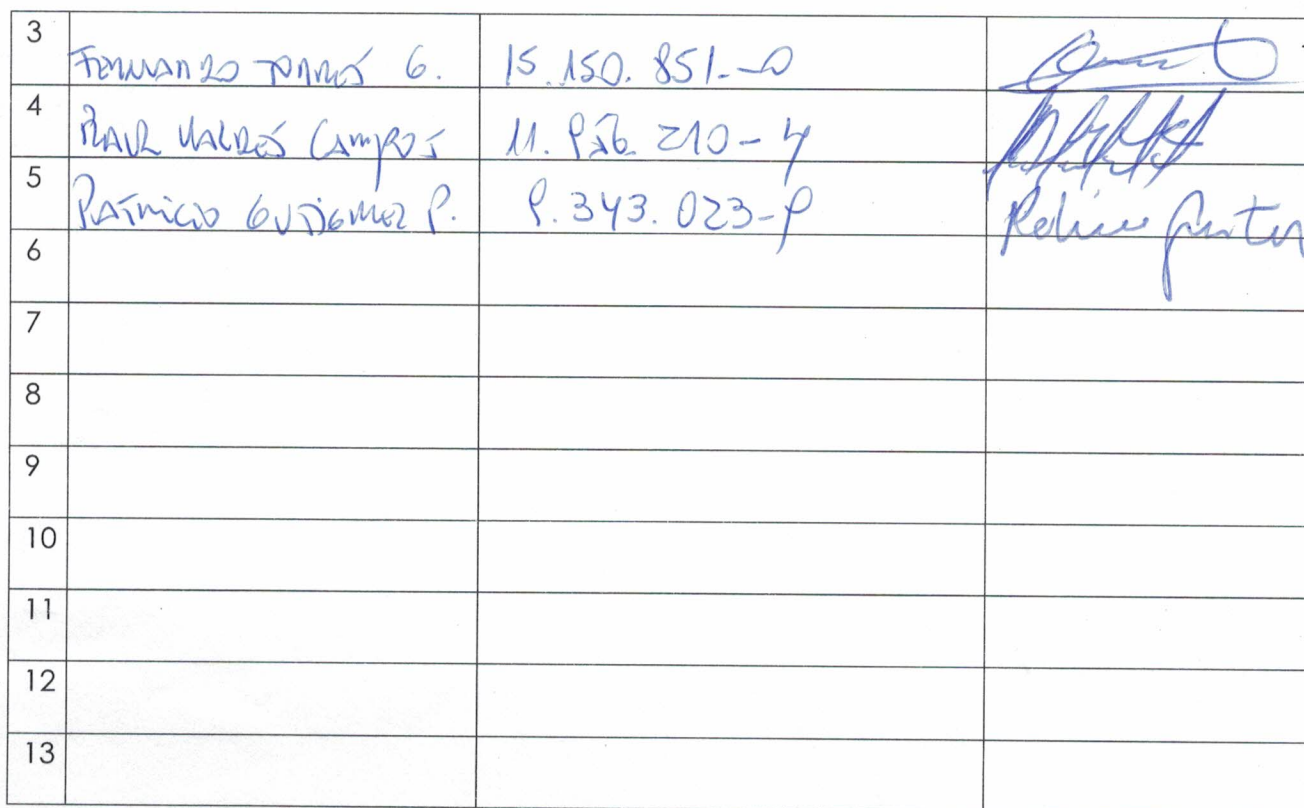 3 Fernando Torres G. 15.150.851-0
4 Raul Valdés Campos 11. 210-4
5 Patricio Gutierrez P. 9.343.023-9
6
7
8
9
10
11
12
13